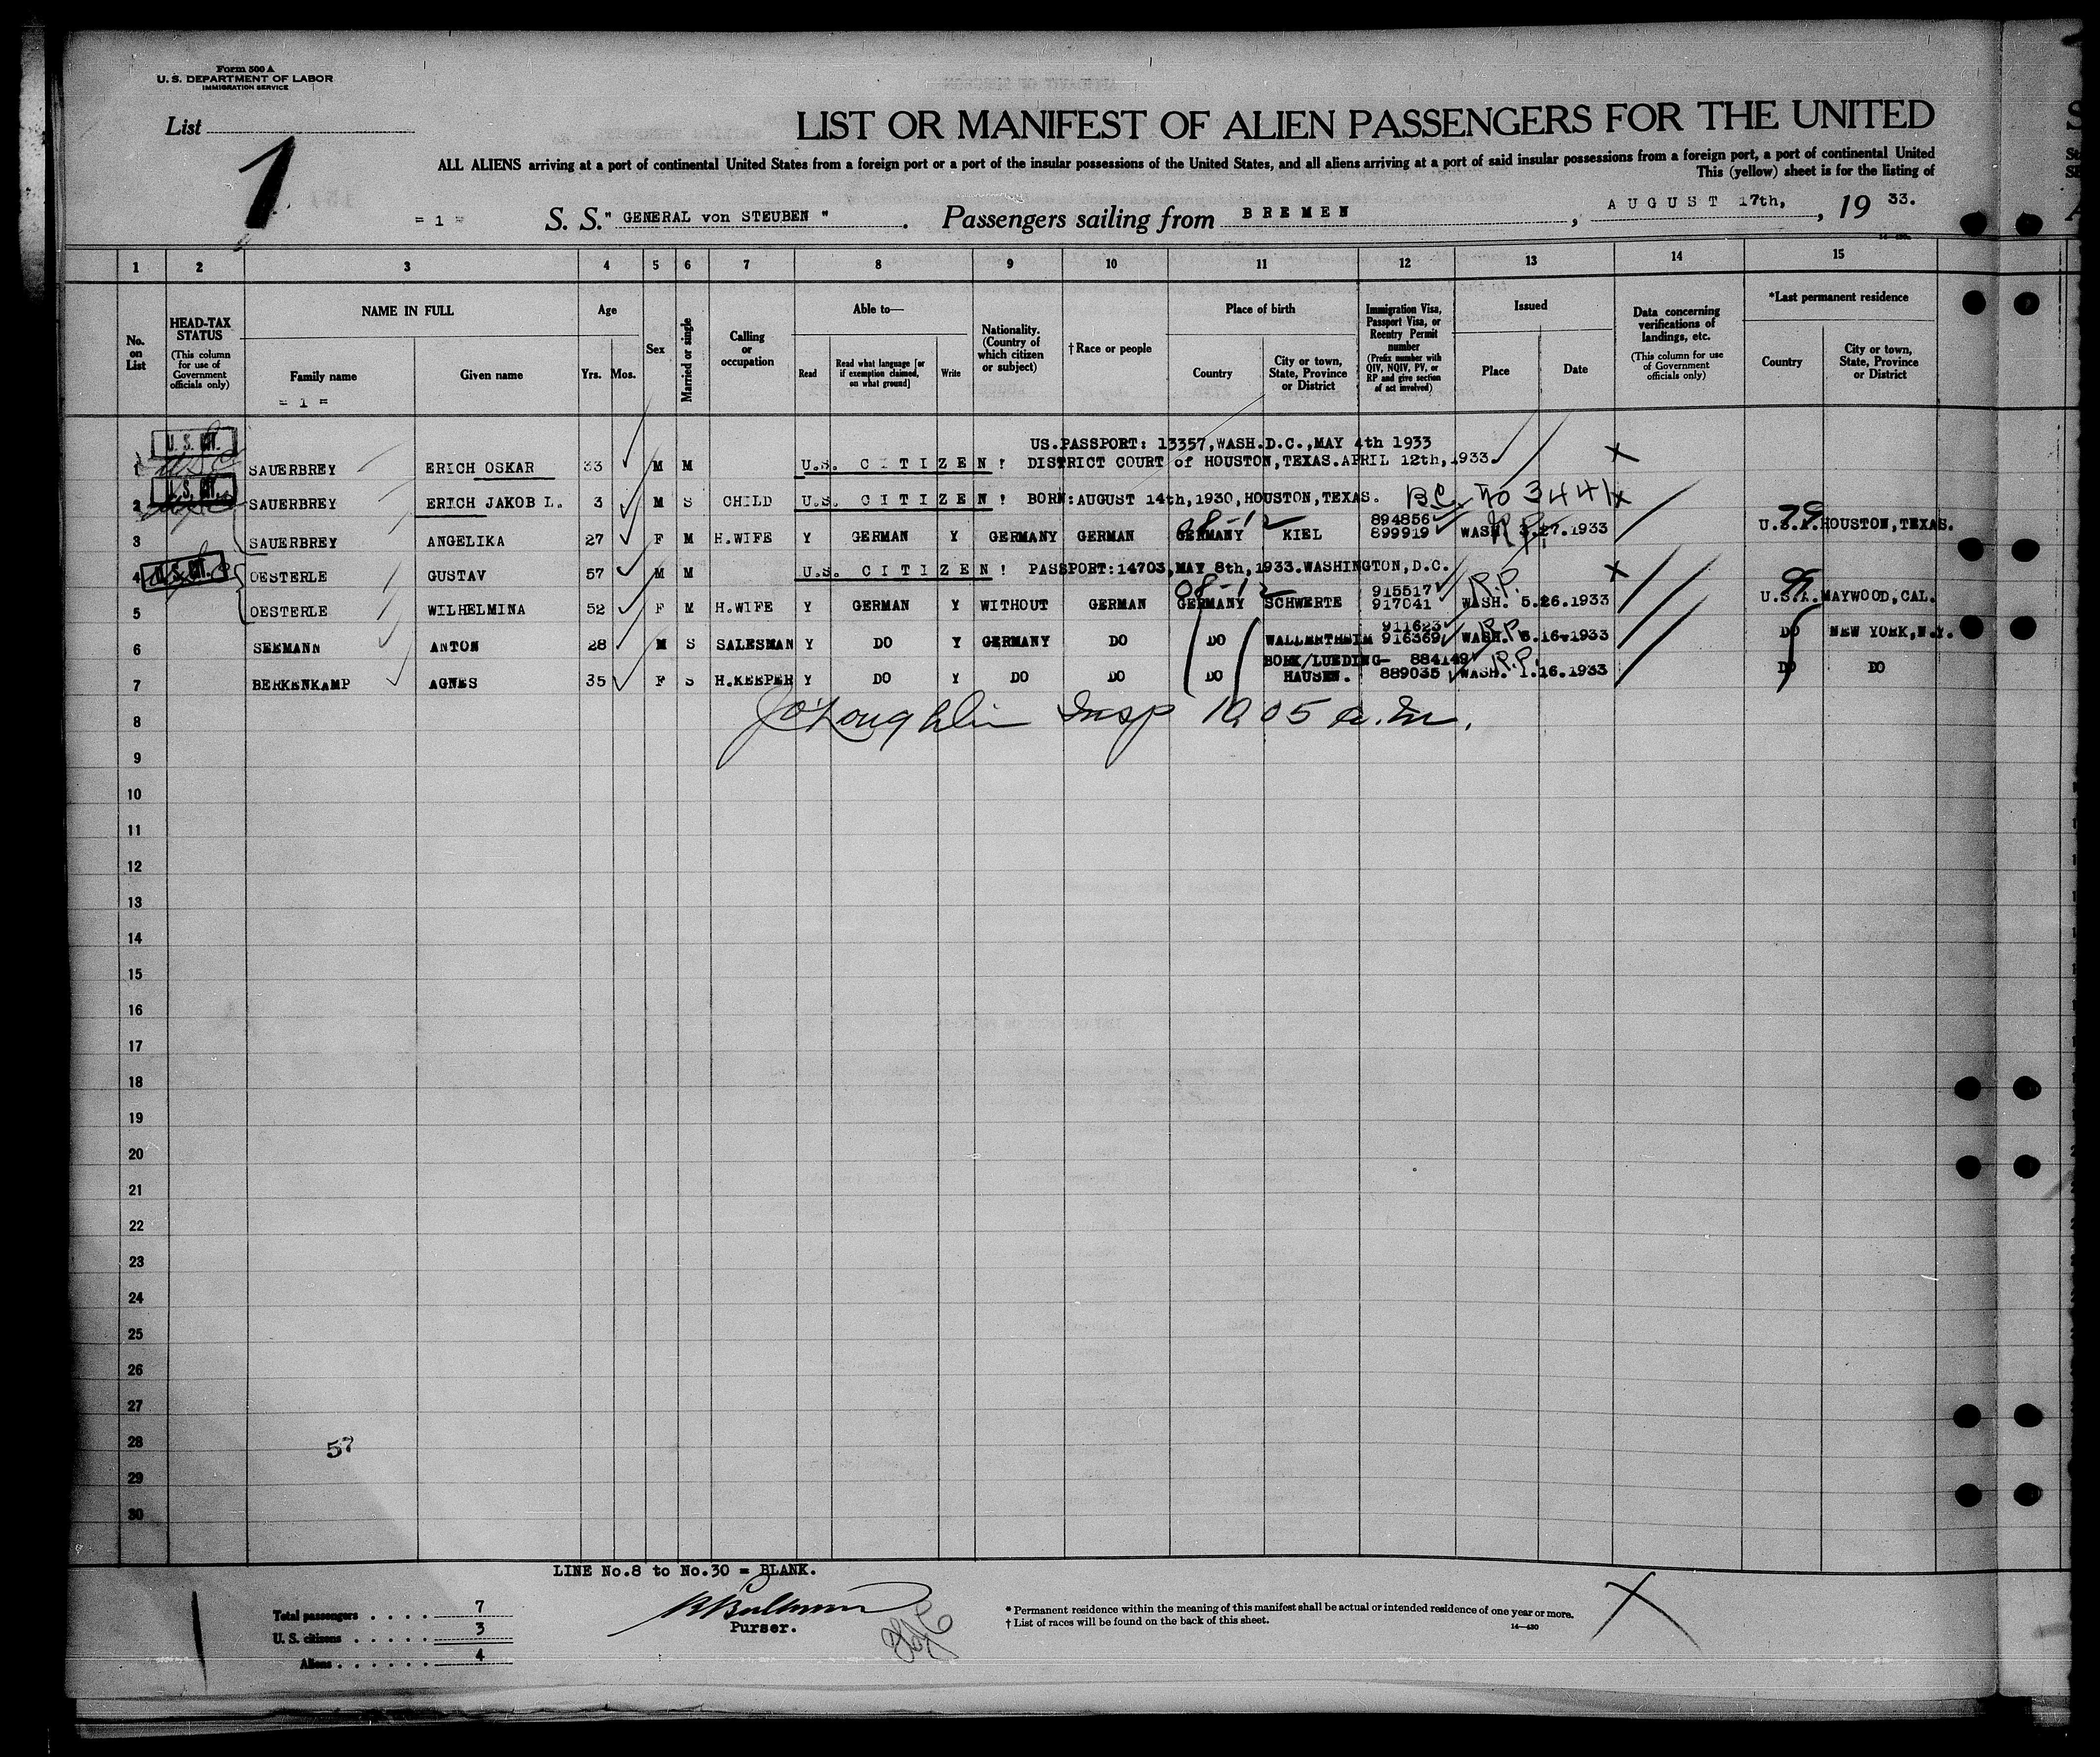 Form 500 A
U. S. DEPARTMENT OF LABOR
IMMIGRATION SERVICE
List
1
LIST OR MANIFEST OF ALIEN PASSENGERS FOR THE UNITED
ALL ALIENS arriving at a port of continental United States from a foreign port or a port of the insular possessions of the United States, and all aliens arriving at a port of said insular possessions from a foreign port, a port of continental United
This (yellow) sheet is for the listing of
= 1 = S. S. "GENERAL von STEUBEN". Passengers sailing from BREMEN, AUGUST 17th, 1933.
1 2 3 4 5 6 7 8 9 10 11 12 13 14 15
No. on List
HEAD-TAX STATUS (This column for use of Government officials only)
NAME IN FULL
Family name
= 1 =
Given name
Age
Yrs. Mos.
Sex
Married or single
Calling or occupation
Able to—
Read
Read what language [or if exemption claimed, on what ground]
Write
Nationality. (Country of which citizen or subject)
†Race or people
Place of birth
Country
City or town, State, Province or District
Immigration Visa, Passport Visa, or Reentry Permit number (Prefix number with QIV, NQIV, PV, or RP and give section of act involved)
Issued
Place
Date
Data concerning verifications of landings, etc. (This column for use of Government officials only)
*Last permanent residence
Country
City or town, State, Province or District
US.PASSPORT: 13357,WASH.D.C.,MAY 4th 1933
1 U.S. CIT. SAUERBREY ERICH OSKAR 33 M M U.S. CITIZEN! DISTRICT COURT of HOUSTON,TEXAS.APRIL 12th,1933. X
2 U.S. CIT. SAUERBREY ERICH JAKOB L. 3 M S CHILD U.S. CITIZEN! BORN:AUGUST 14th,1930,HOUSTON,TEXAS. B.C. No 3441 X
08-12 894856 79
3 SAUERBREY ANGELIKA 27 F M H.WIFE Y GERMAN Y GERMANY GERMAN GERMANY KIEL 899919 WASH. R.P. 3.27.1933 U.S.A. HOUSTON,TEXAS.
4 U.S. CIT. OESTERLE GUSTAV 57 M M U.S. CITIZEN! PASSPORT:14703,MAY 8th,1933.WASHINGTON,D.C. X
08-12 915517 R.P.
5 OESTERLE WILHELMINA 52 F M H.WIFE Y GERMAN Y WITHOUT GERMAN GERMANY SCHWERTE 917041 WASH. 5.26.1933 U.S.A. MAYWOOD,CAL.
911623 R.P.
6 SEEMANN ANTON 28 M S SALESMAN Y DO Y GERMANY DO DO WALLERTHEIM 916369 WASH. 5.16.1933 DO NEW YORK,N.Y.
BORK/LUEDING- 884149 R.P.
7 BERKENKAMP AGNES 35 F S H.KEEPER Y DO Y DO DO DO HAUSEN. 889035 WASH. 1.16.1933 DO DO
8 J O'Loughlin Insp 10.05 a.m.
9
10
11
12
13
14
15
16
17
18
19
20
21
22
23
24
25
26
27
28 57
29
30
LINE No.8 to No.30 = BLANK.
Total passengers . . . . 7
U. S. citizens . . . . . 3
Aliens . . . . . . 4
Purser.
* Permanent residence within the meaning of this manifest shall be actual or intended residence of one year or more.
† List of races will be found on the back of this sheet.
14—430
X